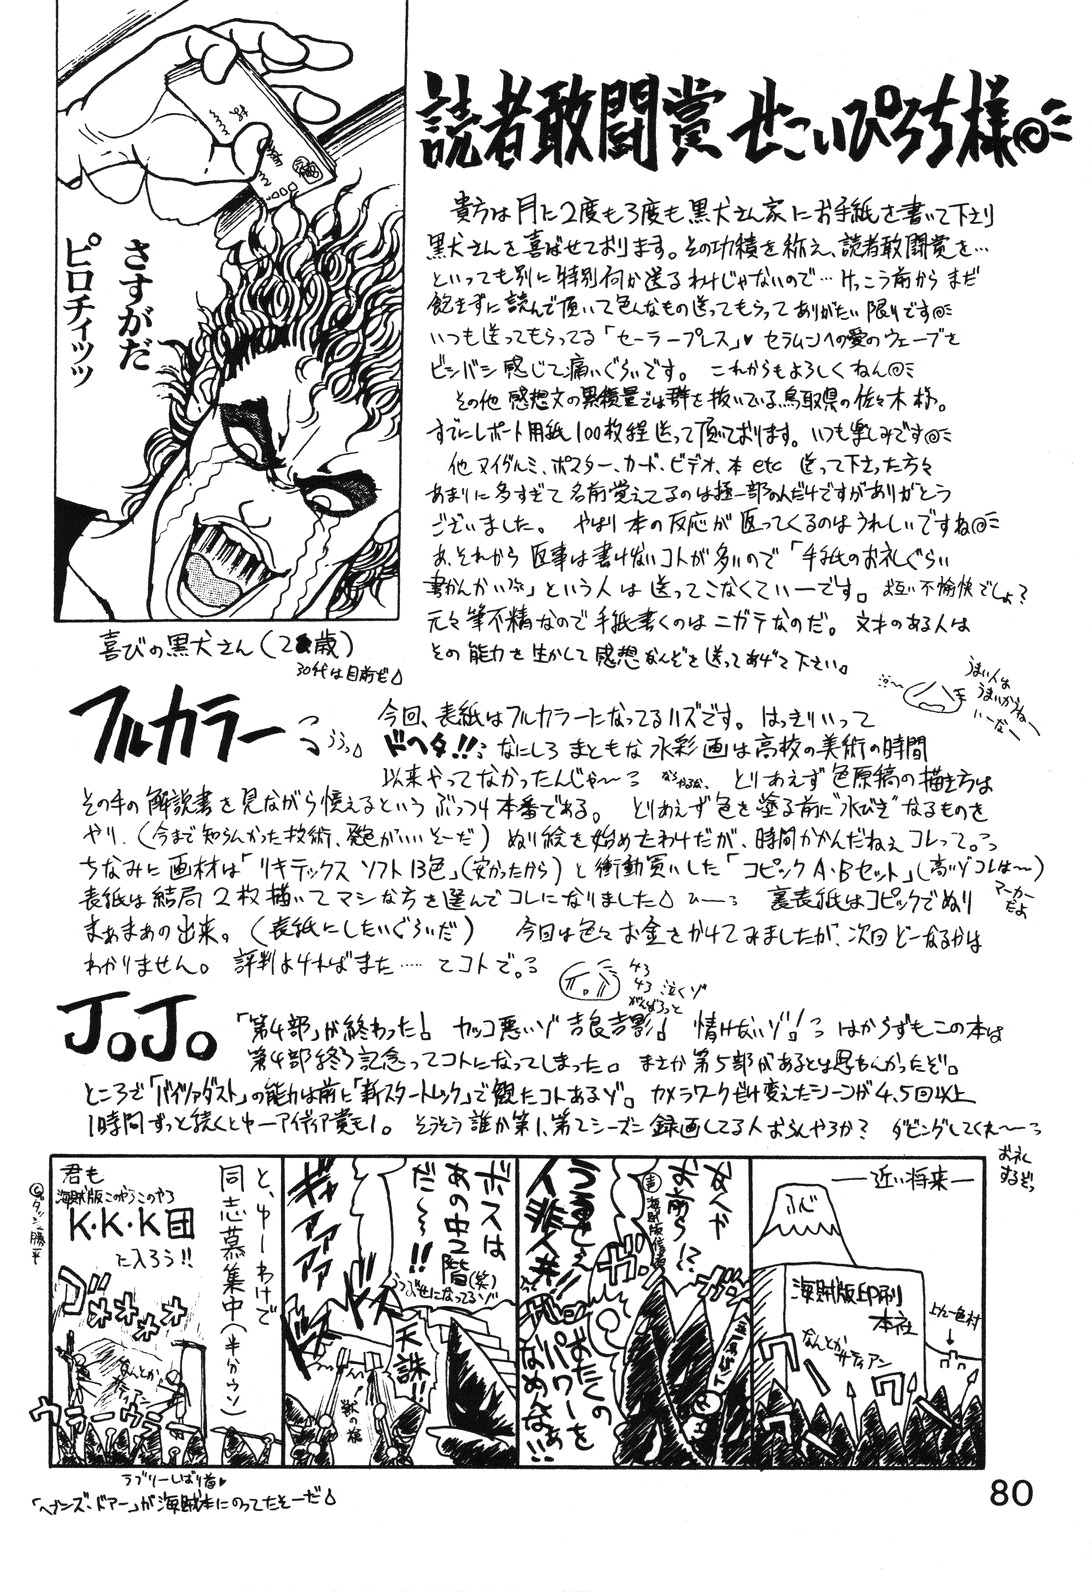 読者敢闘賞 せこいぴろち様
さすがだ
ピロチィッッ
貴方は月に2度も3度も黒犬さん家にお手紙を書いて下さり
黒犬さんを喜ばせております。その功積を称え、読者敢闘賞を…
といっても別に特別何か送るわけじゃないので…けっこう前からまだ
飽きずに読んで頂いて色んなもの送ってもらってありがたい限りです
いつも送ってもらってる「セーラープレス」♥ セラムンへの愛のウェーブを
ビンバシ感じて痛いぐらいです。 これからもよろしくねん
その他 感想文の累積量では群を抜いている鳥取県の佐々木様。
すでにレポート用紙100枚程送って頂いております。いつも楽しみです
他 ヌイグルミ、ポスター、カード、ビデオ、本 etc 送って下さった方々
あまりに多すぎて名前覚えてるのは極一部の人だけですがありがとう
ございました。 やはり本の反応が返ってくるのはうれしいですね
あ、それから返事は書けないコトが多いので「手紙のお礼ぐらい
書かんかい」という人は送ってこなくていーです。お互い不愉快でしょ?
元々筆不精なので手紙書くのはニガテなのだ。文才のある人は
その能力を生かして感想なんぞを送ってあげて下さい。
うまい人は
うまいからねー
いーなー
喜びの黒犬さん(2 歳)
30代は目前だ
フルカラー
ううっ
今回、表紙はフルカラーになってるハズです。はっきりいって
ドヘタ!! なにしろまともな水彩画は高校の美術の時間
以来やってなかったんじゃ〜 とりあえず色原稿の描き方は
その手の解説書を見ながら憶えるというぶっつけ本番である。 とりあえず色を塗る前に"水びき"なるものを
やり、(今まで知らんかった技術、発色がいいそーだ)ぬり絵を始めたわけだが、時間かかんだねぇコレって。
ちなみに画材は「リキテックス ソフト13色」(安かったから)と衝動買いした「コピックA・Bセット」(高いゾコレは〜)
マーカー
だよ
表紙は結局2枚描いてマシな方を選んでコレになりました ひー 裏表紙はコピックでぬり
まぁまぁの出来。(表紙にしたいぐらいだ) 今回は色々お金をかけてみましたが、次回どーなるかは
わかりません。評判よければまた……てコトで。
泣くゾ
JoJo
「第4部」が終わった! カッコ悪いゾ吉良吉影! 情けないゾ! はからずもこの本は
第4部終了記念ってコトになってしまった。まさか第5部があるとは思もんかったぞ。
ところで「バイツァダスト」の能力は前に「新スタートレック」で観たコトあるゾ。カメラワークだけ変えたシーンが4、5回以上
1時間ずっと続くとゆーアイディア賞もん。そうそう誰か第1、第2シーズン録画してる人おらんやろか? ダビングしてくれ〜
お礼
するぞっ
―近い将来―
ふじ
海賊版印刷
本社
上九一色村
なんとか
サティアン
なんや
お前ら!?
うるせえ
人非人共!!
おたくの
パワーを
なめんなぁ!!
ボスは
あの中2階(笑)
だ〜〜!!
天誅!!
ギャアアアア
獣の槍
と、ゆーわけで
同志募集中(半分ウソ)
君も
海賊版このやろこのやろ
K・K・K団
に入ろう!!
ゴォォォォ
なんとか
サティアン
ウラーウラー
ラブリーしばり首♥
「ヘブンズ・ドアー」が海賊本にのってたそーだ
80